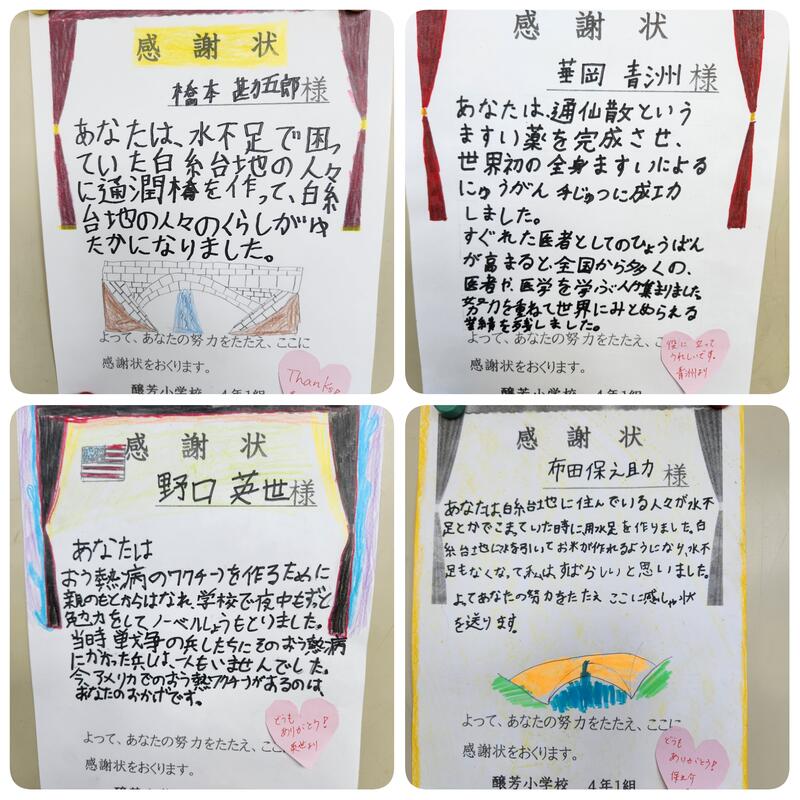 感謝状
橋本 勘五郎様
あなたは、水不足で困っ
ていた白糸台地の人々
に通潤橋を作って、白糸
台地の人々のくらしがゆ
たかになりました。
よって、あなたの努力をたたえ、ここに
感謝状をおくります。
醸芳小学校 4年1組
Thanks!
感謝状
華岡 青洲様
あなたは、通仙散という
ますい薬を完成させ、
世界初の全身ますいによる
にゅうがん手じゅつに成功
しました。
すぐれた医者としてのひょうばん
が高まると、全国から多くの、
医者や、医学を学ぶ人が集まりました。
努力を重ねて世界にみとめられる
業績を残しました。
よって、あなたの努力をたたえ、こ
感謝状をおくります。
醸芳小学校 4年1組
役に立って
うれしいです。
青洲より
感謝状
野口 英世様
あなたは
おう熱病のワクチンを作るために
親のもとからはなれ、学校で夜中もずっと
勉強をしてノーベルしょうもとりました。
当時戦争の兵したちにそのおう熱病
にかかった兵しは、一人もいませんでした。
今、アメリカでのおう熱ワクチンがあるのは、
あなたのおかげです。
よって、あなたの努力をたたえ、こ
感謝状をおくります。
どうも
ありがとう!
英世より
感謝状
布田保之助様
あなたは白糸台地に住んでいる人々が水不
足とかでこまっていた時に用水足を作りました。白
糸台地に水を引いてお米が作れるようになり、水不
足もなくなって私は、すばらしいと思いました。
よってあなたの努力をたたえ ここに感しゃ状
を送ります。
よって、あなたの努力をたたえ、ここに
感謝状をおくります。
醸芳小学校 4年1組
どうも
ありがとう!